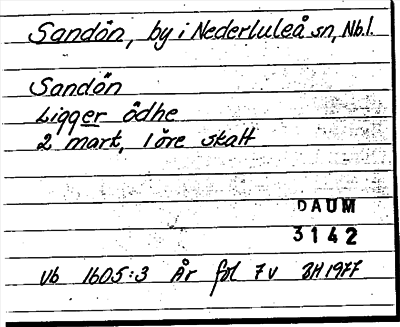 Sandön, by i Nederluleå sn, Nb.l.
Sandön
Ligger ödhe
2 mark, 1 öre skatt
DAUM
3142
Vb 1605:3 År fol 7v BH 1977